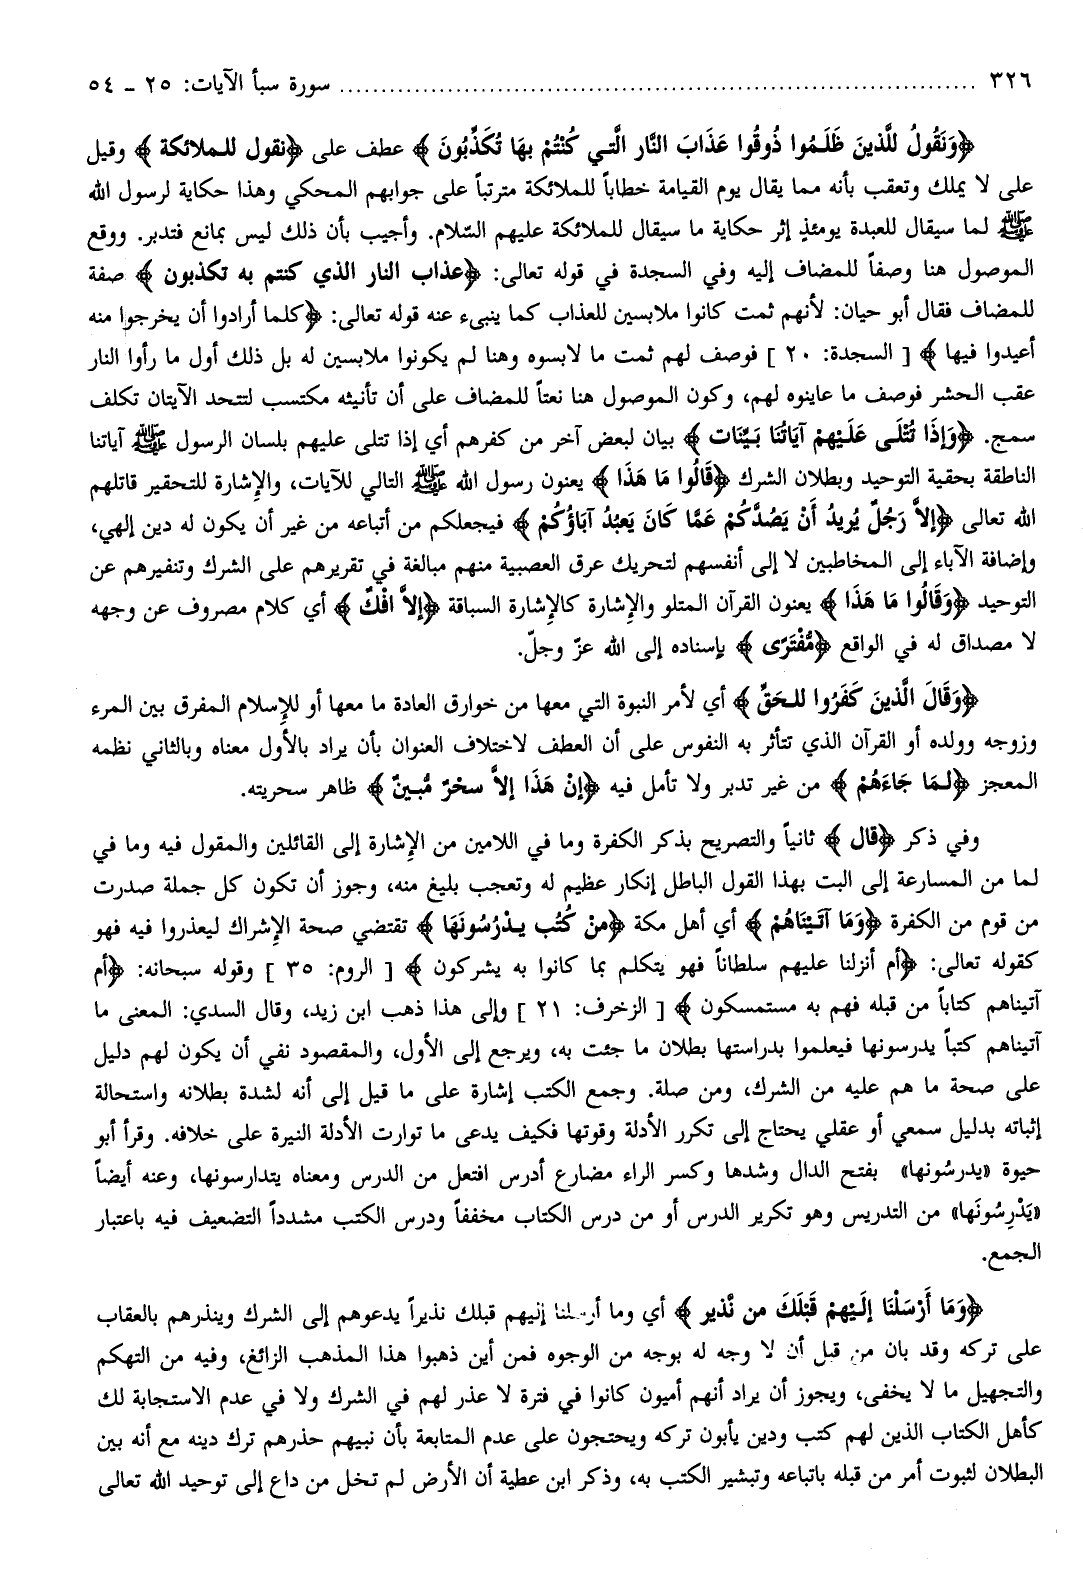 ٣٢٦ ........................................ سورة سبأ الآيات: ٢٥ - ٥٤
﴿وَنَقُولُ للَّذينَ ظَلَمُوا ذُوقُوا عَذَابَ النَّار الَّتي كُنْتُمْ بهَا تُكَذِّبُونَ﴾ عطف على ﴿نقول للملائكة﴾ وقيل
على لا يملك وتعقب بأنه مما يقال يوم القيامة خطاباً للملائكة مترتباً على جوابهم المحكي وهذا حكاية لرسول الله
ﷺ لما سيقال للعبدة يومئذٍ إثر حكاية ما سيقال للملائكة عليهم السّلام. وأجيب بأن ذلك ليس بمانع فتدبر. ووقع
الموصول هنا وصفاً للمضاف إليه وفي السجدة في قوله تعالى: ﴿عذاب النار الذي كنتم به تكذبون﴾ صفة
للمضاف فقال أبو حيان: لأنهم ثمت كانوا ملابسين للعذاب كما ينبىء عنه قوله تعالى: ﴿كلما أرادوا أن يخرجوا منه
أعيدوا فيها﴾ [ السجدة: ٢٠ ] فوصف لهم ثمت ما لابسوه وهنا لم يكونوا ملابسين له بل ذلك أول ما رأوا النار
عقب الحشر فوصف ما عاينوه لهم، وكون الموصول هنا نعتاً للمضاف على أن تأنيثه مكتسب لتتحد الآيتان تكلف
سمج. ﴿وَإذَا تُتْلَى عَلَيْهمْ آيَاتُنَا بَيِّنَات﴾ بيان لبعض آخر من كفرهم أي إذا تتلى عليهم بلسان الرسول ﷺ آياتنا
الناطقة بحقية التوحيد وبطلان الشرك ﴿قَالُوا مَا هَذَا﴾ يعنون رسول الله ﷺ التالي للآيات، والإشارة للتحقير قاتلهم
الله تعالى ﴿إلاَّ رَجُلٌ يُريدُ أَنْ يَصُدَّكُمْ عَمَّا كَانَ يَعبُدُ آبَاؤُكُمْ﴾ فيجعلكم من أتباعه من غير أن يكون له دين إلهي،
وإضافة الآباء إلى المخاطبين لا إلى أنفسهم لتحريك عرق العصبية منهم مبالغة في تقريرهم على الشرك وتنفيرهم عن
التوحيد ﴿وَقَالُوا مَا هَذَا﴾ يعنون القرآن المتلو والإشارة كالإشارة السباقة ﴿إلاَّ افْكٌ﴾ أي كلام مصروف عن وجهه
لا مصداق له في الواقع ﴿مُّفْتَرًى﴾ بإسناده إلى الله عزّ وجلّ.
﴿وَقَالَ الَّذينَ كَفَرُوا للحَقِّ﴾ أي لأمر النبوة التي معها من خوارق العادة ما معها أو للإسلام المفرق بين المرء
وزوجه وولده أو القرآن الذي تتأثر به النفوس على أن العطف لاختلاف العنوان بأن يراد بالأول معناه وبالثاني نظمه
المعجز ﴿لمَا جَاءَهُمْ﴾ من غير تدبر ولا تأمل فيه ﴿إنْ هَذَا إلاَّ سحْرٌ مُّبينٌ﴾ ظاهر سحريته.
وفي ذكر ﴿قال﴾ ثانياً والتصريح بذكر الكفرة وما في اللامين من الإشارة إلى القائلين والمقول فيه وما في
لما من المسارعة إلى البت بهذا القول الباطل إنكار عظيم له وتعجب بليغ منه، وجوز أن تكون كل جملة صدرت
من قوم من الكفرة ﴿وَمَا آتَيْنَاهُمْ﴾ أي أهل مكة ﴿منْ كُتُب يدْرُسُونَهَا﴾ تقتضي صحة الإشراك ليعذروا فيه فهو
كقوله تعالى: ﴿أم أنزلنا عليهم سلطاناً فهو يتكلم بما كانوا به يشركون﴾ [ الروم: ٣٥ ] وقوله سبحانه: ﴿أم
آتيناهم كتاباً من قبله فهم به مستمسكون﴾ [ الزخرف: ٢١ ] وإلى هذا ذهب ابن زيد، وقال السدي: المعنى ما
آتيناهم كتباً يدرسونها فيعلموا بدراستها بطلان ما جئت به، ويرجع إلى الأول، والمقصود نفي أن يكون لهم دليل
على صحة ما هم عليه من الشرك، ومن صلة. وجمع الكتب إشارة على ما قيل إلى أنه لشدة بطلانه واستحالة
إثباته بدليل سمعي أو عقلي يحتاج إلى تكرر الأدلة وقوتها فكيف يدعى ما توارت الأدلة النيرة على خلافه. وقرأ أبو
حيوة «يدرسُونها» بفتح الدال وشدها وكسر الراء مضارع أدرس افتعل من الدرس ومعناه يتدارسونها، وعنه أيضاً
«يَدْرِسُونَها» من التدريس وهو تكرير الدرس أو من درس الكتاب مخففاً ودرس الكتب مشدداً التضعيف فيه باعتبار
الجمع.
﴿وَمَا أَرْسَلْنَا إلَيْهمْ قَبْلَكَ من نَّذير﴾ أي وما أرسلنا إليهم قبلك نذيراً يدعوهم إلى الشرك وينذرهم بالعقاب
على تركه وقد بان من قبل أن لا وجه له بوجه من الوجوه فمن أين ذهبوا هذا المذهب الزائغ، وفيه من التهكم
والتجهيل ما لا يخفى، ويجوز أن يراد أنهم أميون كانوا في فترة لا عذر لهم في الشرك ولا في عدم الاستجابة لك
كأهل الكتاب الذين لهم كتب ودين يأبون تركه ويحتجون على عدم المتابعة بأن نبيهم حذرهم ترك دينه مع أنه بين
البطلان لثبوت أمر من قبله باتباعه وتبشير الكتب به، وذكر ابن عطية أن الأرض لم تخل من داع إلى توحيد الله تعالى